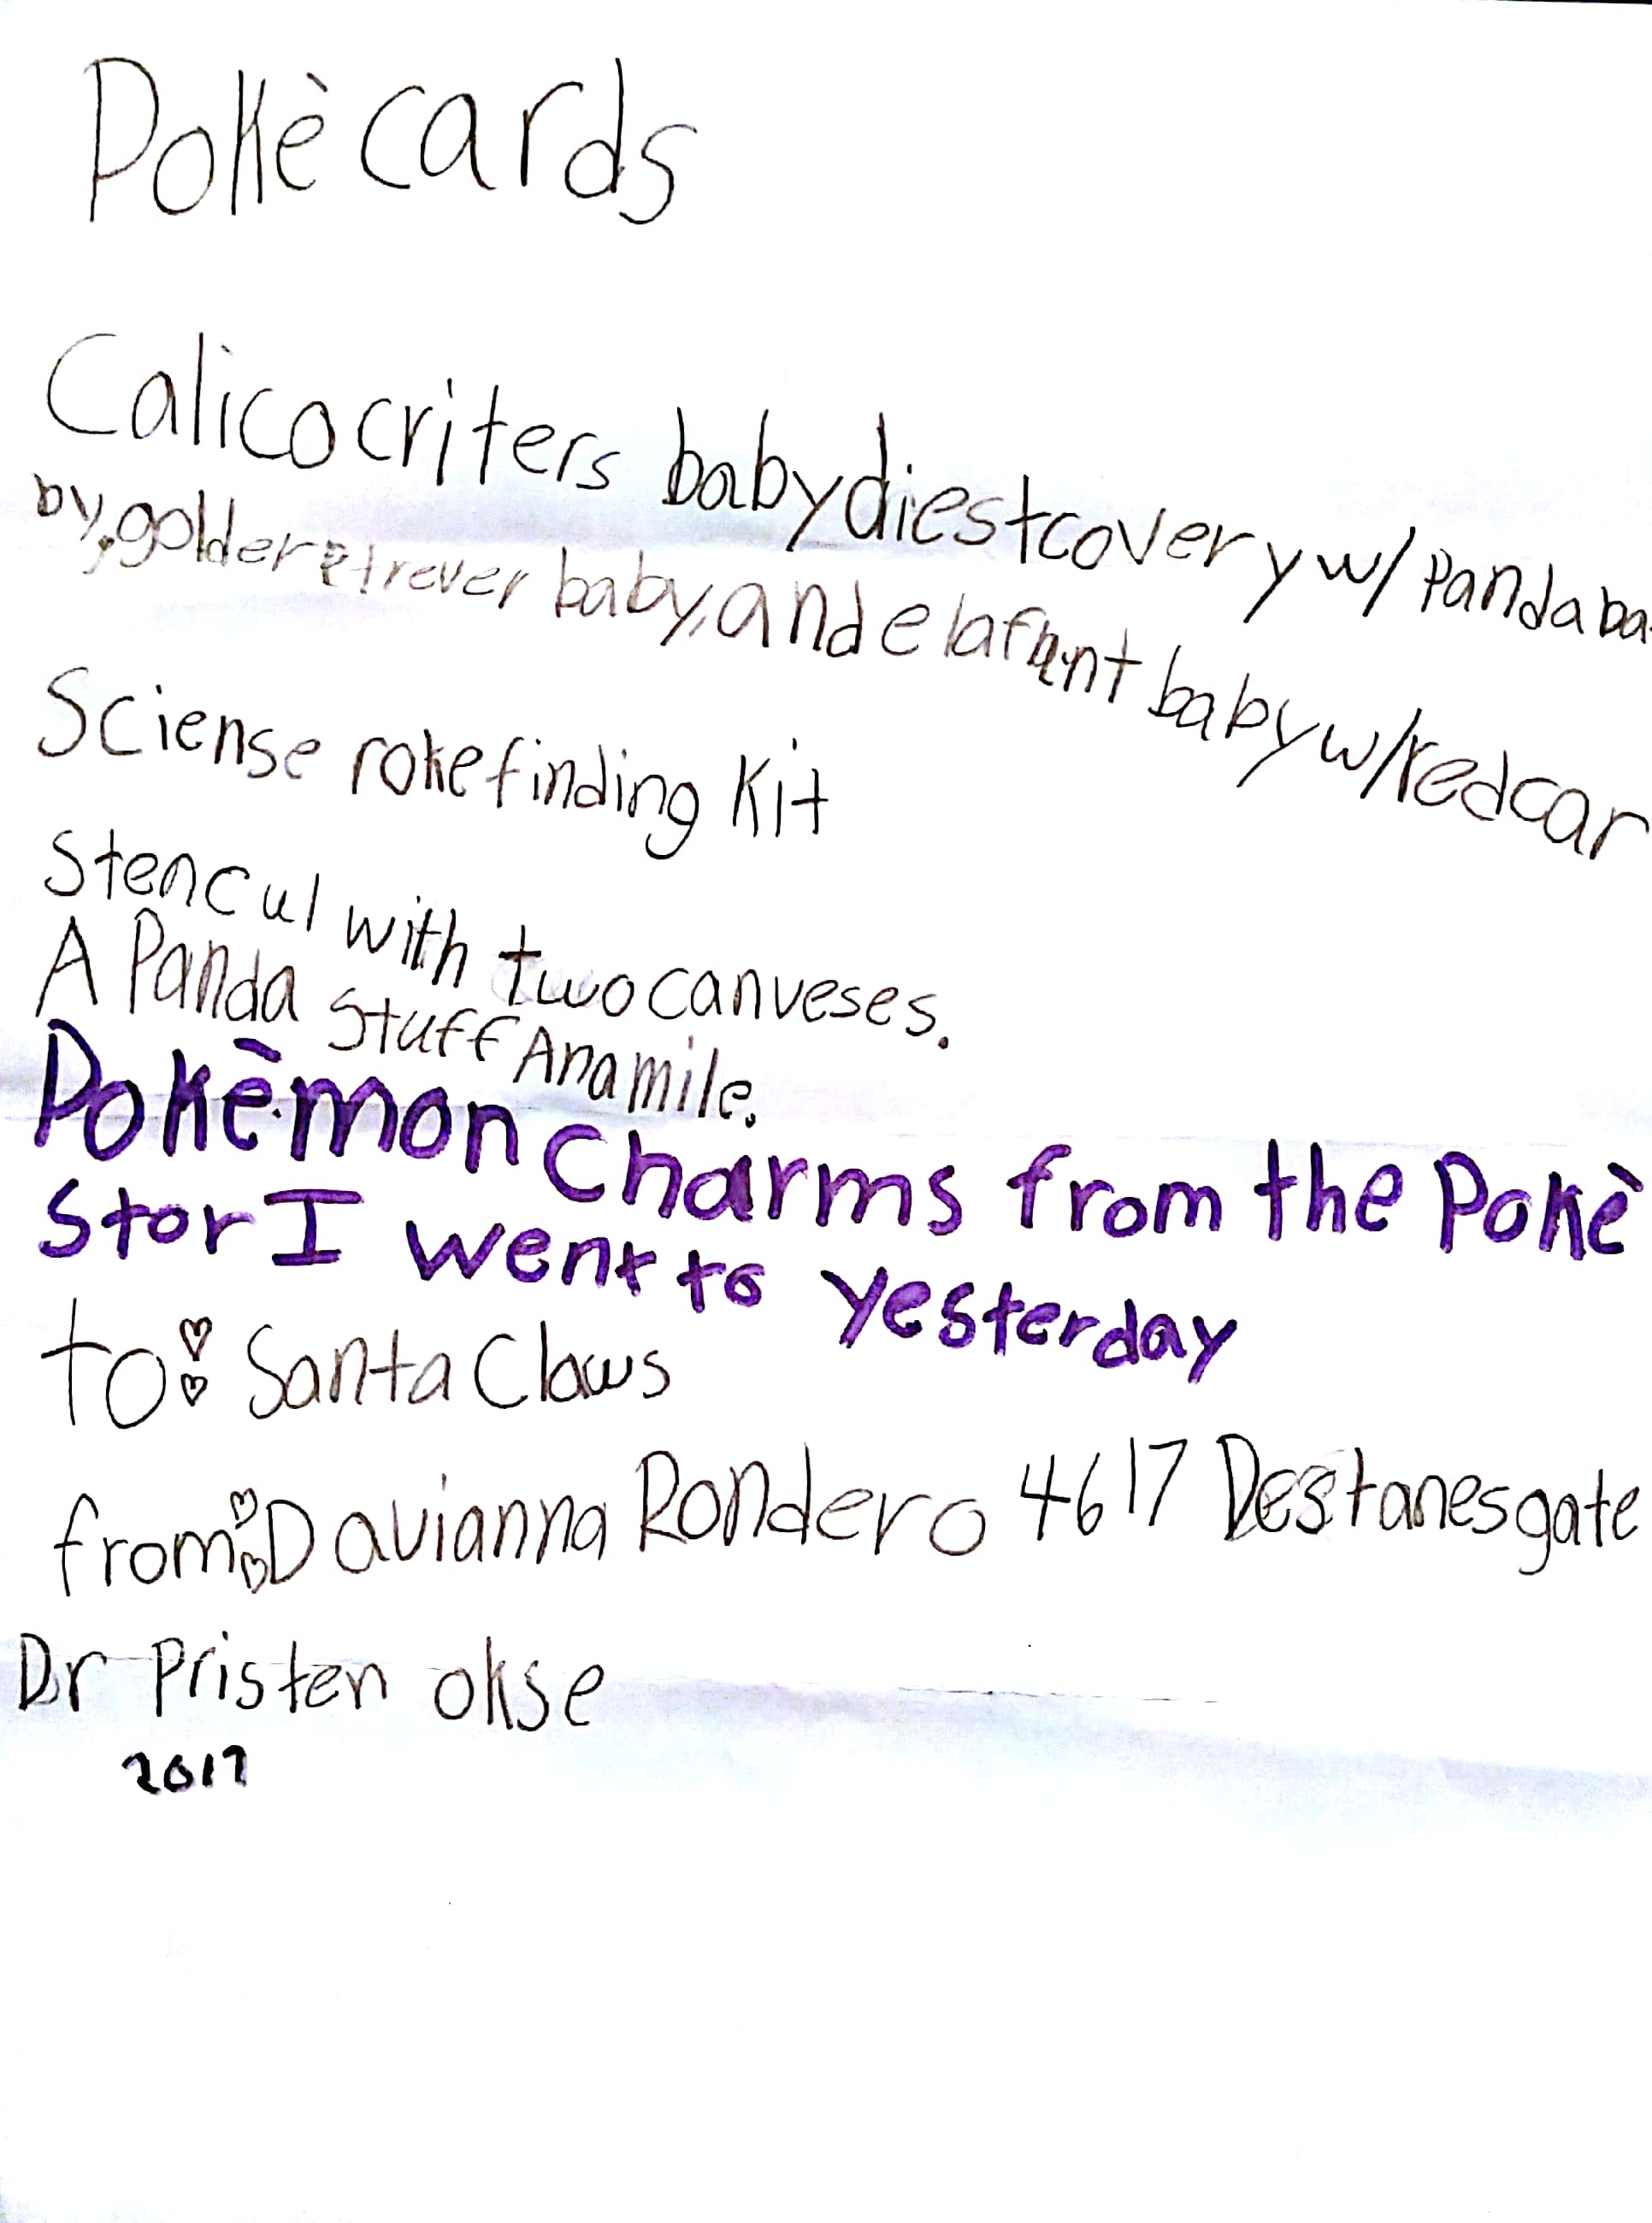 Pokè cards
Calico criters baby diestcovery w/ Panda ba
by, golderetrever baby, and elafant baby w/redcar
Sciense roke finding Kit
Stencul with two canveses.
A Panda Stuff Anamile.
Pokèmon Charms from the Pokè
Stor I went to yesterday
to: Santa Claws
from: Davianna Rondero 4617 Destanesgate
Dr Pristen okse
2017